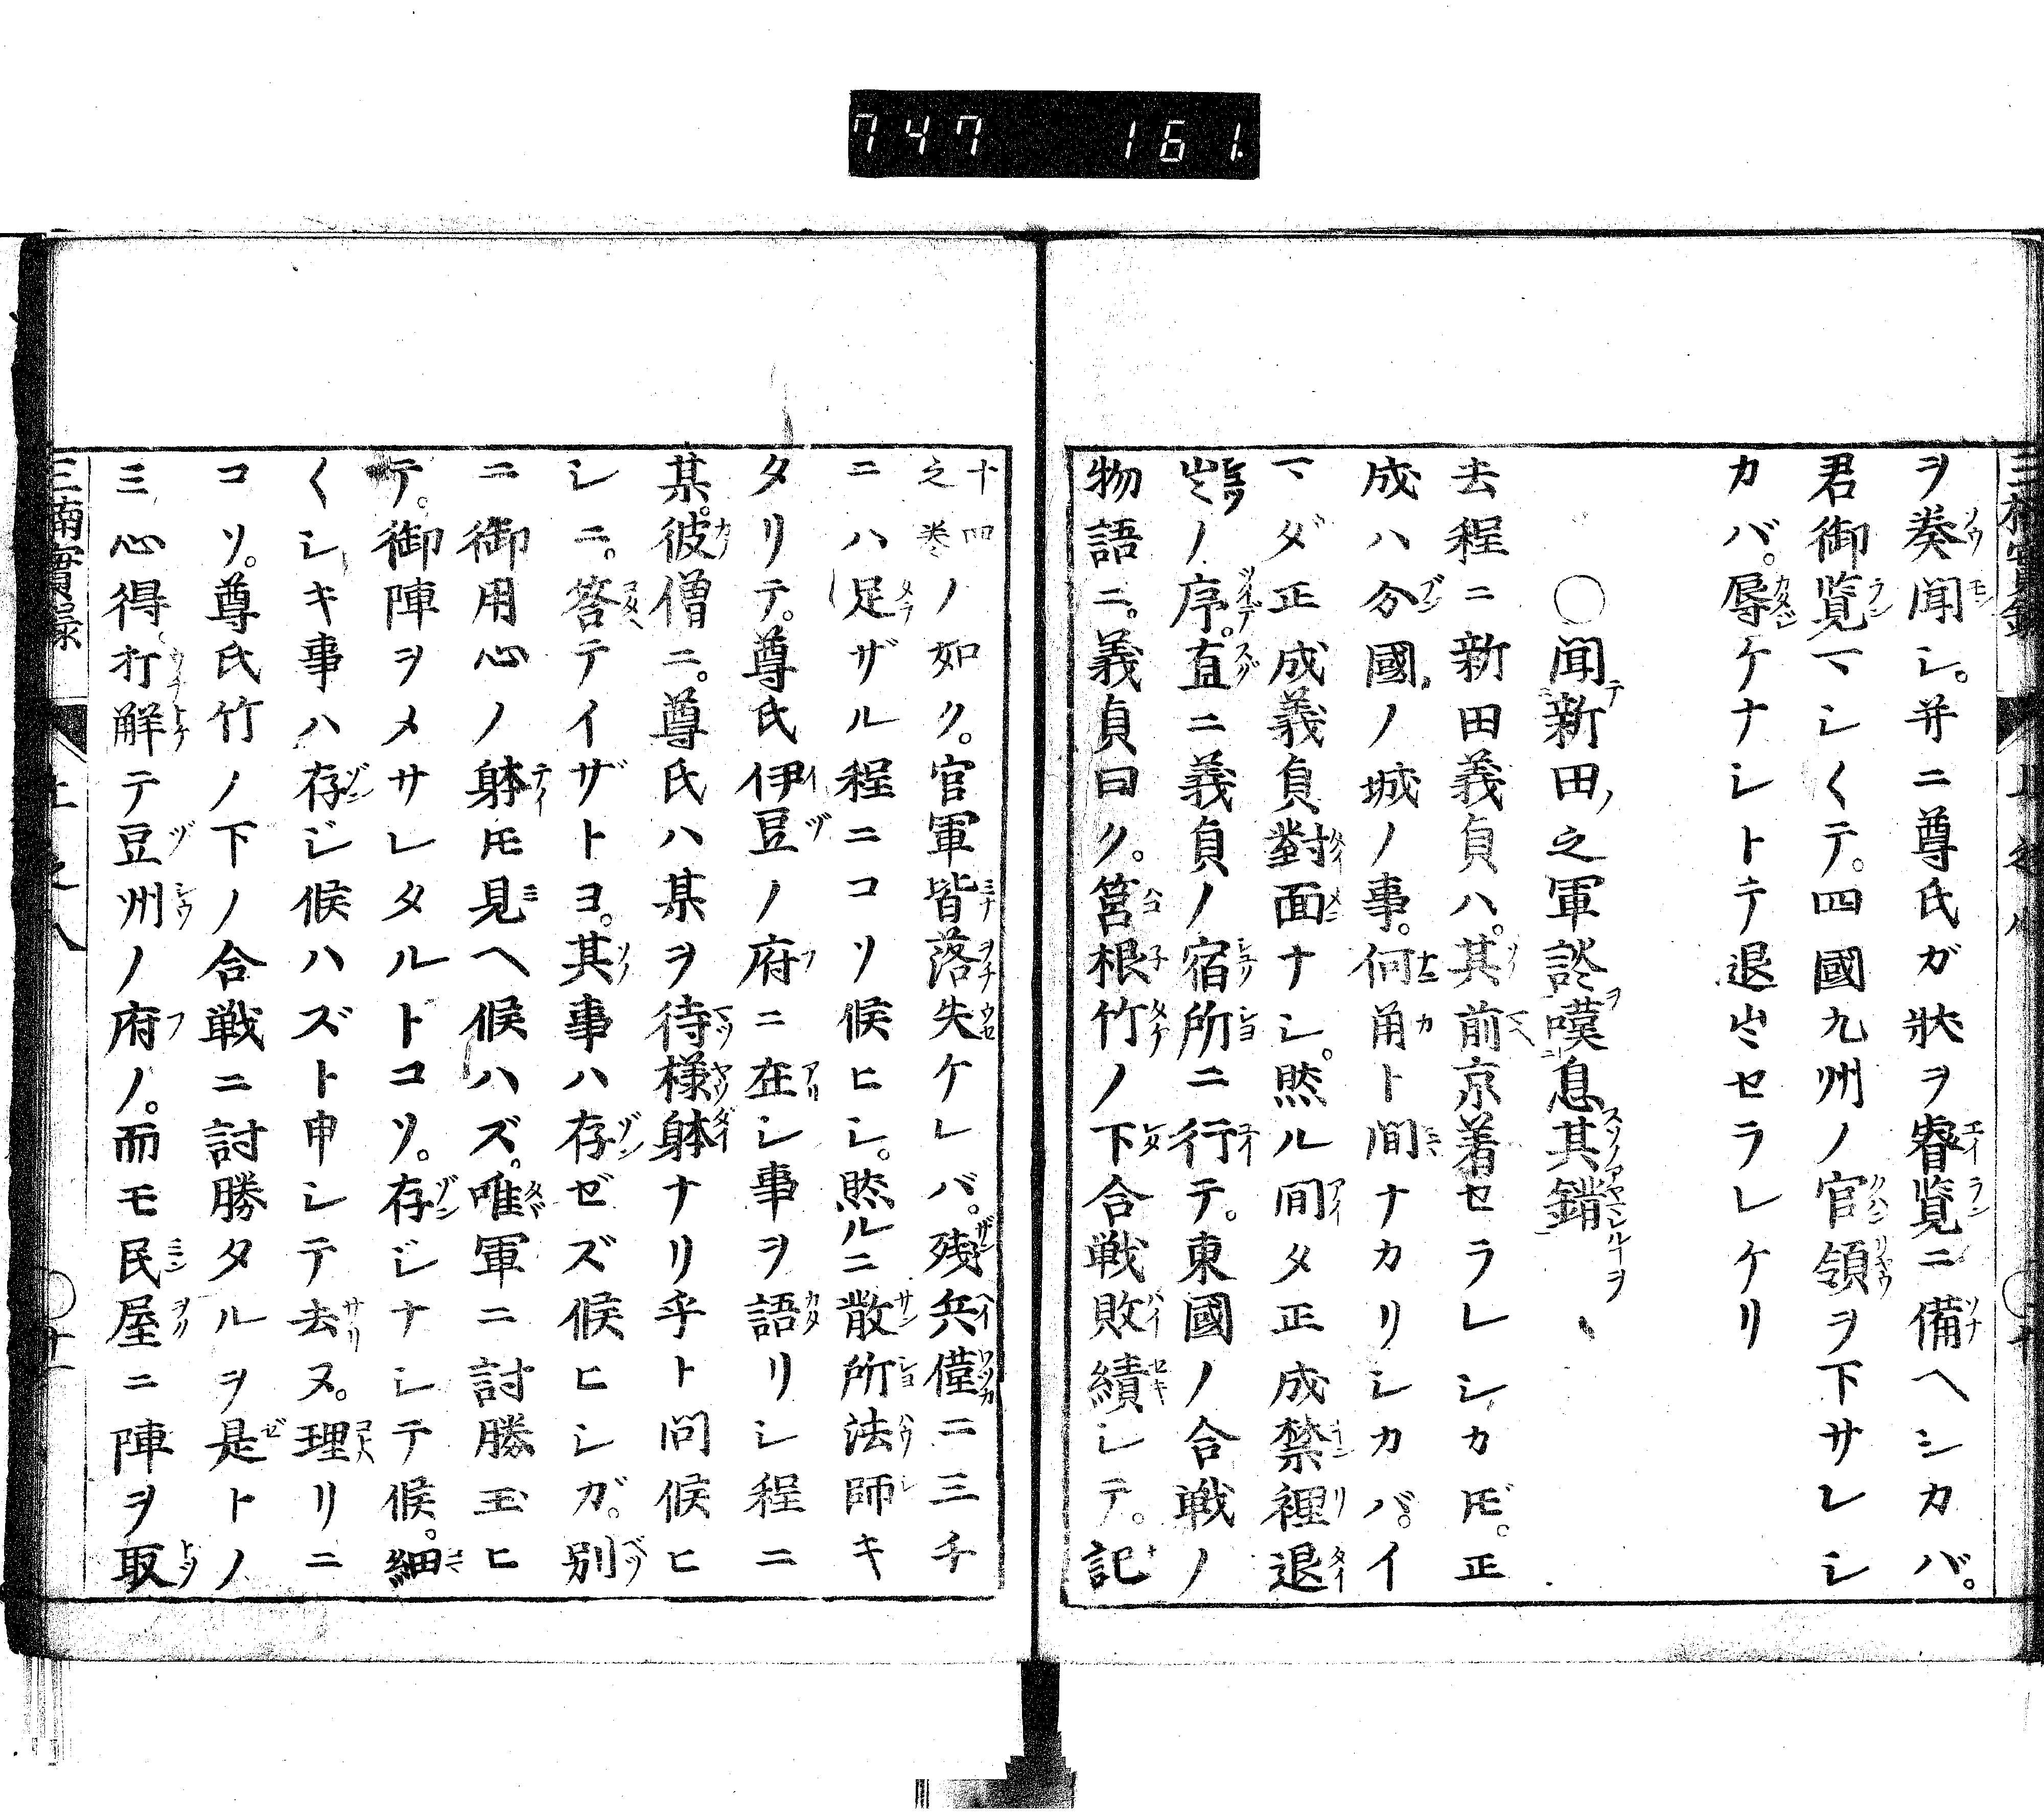 747 161
ヲ奏聞シ。并ニ尊氏ガ状ヲ睿覧ニ備ヘシカバ。
君御覧マシ〱テ。四國九州ノ官領ヲ下サレシ
カバ。辱ケナシトテ退出セラレケリ
○聞新田之軍談嘆息其錯
去程ニ新田義貞ハ。其前京着セラレシカ𪜈。正
成ハ分國ノ城ノ事。何角ト間ナカリシカバ。イ
マダ正成義貞對面ナシ。然ル間タ正成禁裡退
出ノ序。直ニ義貞ノ宿所ニ行テ。東國ノ合戦ノ
物語ニ。義貞曰ク。筥根竹ノ下合戦敗績シテ。記
十四之巻ノ如ク。官軍皆落失ケレバ。残兵僅ニ三千
ニハ足ザル程ニコソ候ヒシ。然ルニ散所法師キ
タリテ。尊氏伊豆ノ府ニ在シ事ヲ語リシ程ニ
某。彼僧ニ。尊氏ハ某ヲ待様躰ナリ乎ト問候ヒ
シニ。答テイザトヨ。其事ハ存ゼズ候ヒシガ。別
ニ御用心ノ躰𪜈見ヘ候ハズ。唯軍ニ討勝玉ヒ
テ。御陣ヲメサレタルトコソ。存ジナシテ候。細
〱シキ事ハ存ジ候ハズト申シテ去ヌ。理リニ
コソ。尊氏竹ノ下ノ合戦ニ討勝タルヲ是トノ
ミ心得打解テ豆州ノ府ノ。而モ民屋ニ陣ヲ取
三楠實録 上之八 廿一